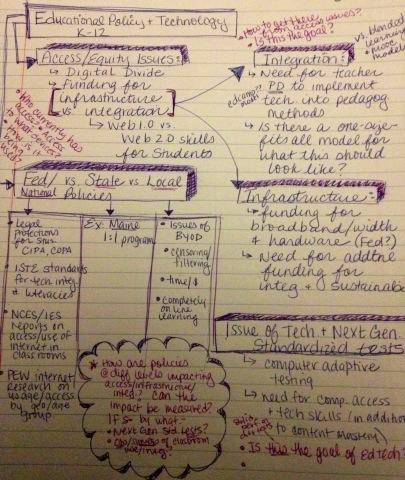 Educational Policy + Technology
K-12
How to get there
from access issues?
Is this the goal?
vs. blended
learning
models
Access/Equity Issues:
↳ Digital Divide
↳ Funding for
infrastructure
vs. integration
↳ Web 1.0 vs.
Web 2.0 skills
for students
edcamp??
Integration:
↳ Need for teacher
PD to implement
tech into pedagog
methods
↳ Is there a one-size-
fits all model for
what this should
look like?
Who
has
Fed/ vs State vs Local
National Policies
Infrastructure:
↳ funding for
broadband/width
& hardware (Fed?)
↳ Need for addtnl
funding for
integ & sustainable
• Legal
Protections
for
CIPA, COPA
• ISTE standards
for tech integ.
& literacies
• NCES/IES
Reports on
access/use of
internet in
classrooms
• PEW internet
research on
usage/access
by geo/age
group.
Ex: Maine
1:1 program
• Issues of
BYOD
• censoring/
filtering
• time/$
• Completely
on line
learning
* How are policies
@ diff levels impacting
access/infrastructure/
integ? Can the
impact be measured?
If so - by what -
• Next Gen Std tests?
of classroom
use/integ?
Issue of Tech + Next Gen.
Standardized tests
↳ computer adaptive
testing
↳ need for comp. access
+ tech skills (in addition
to content mastery)
• Is this the goal of EdTech?